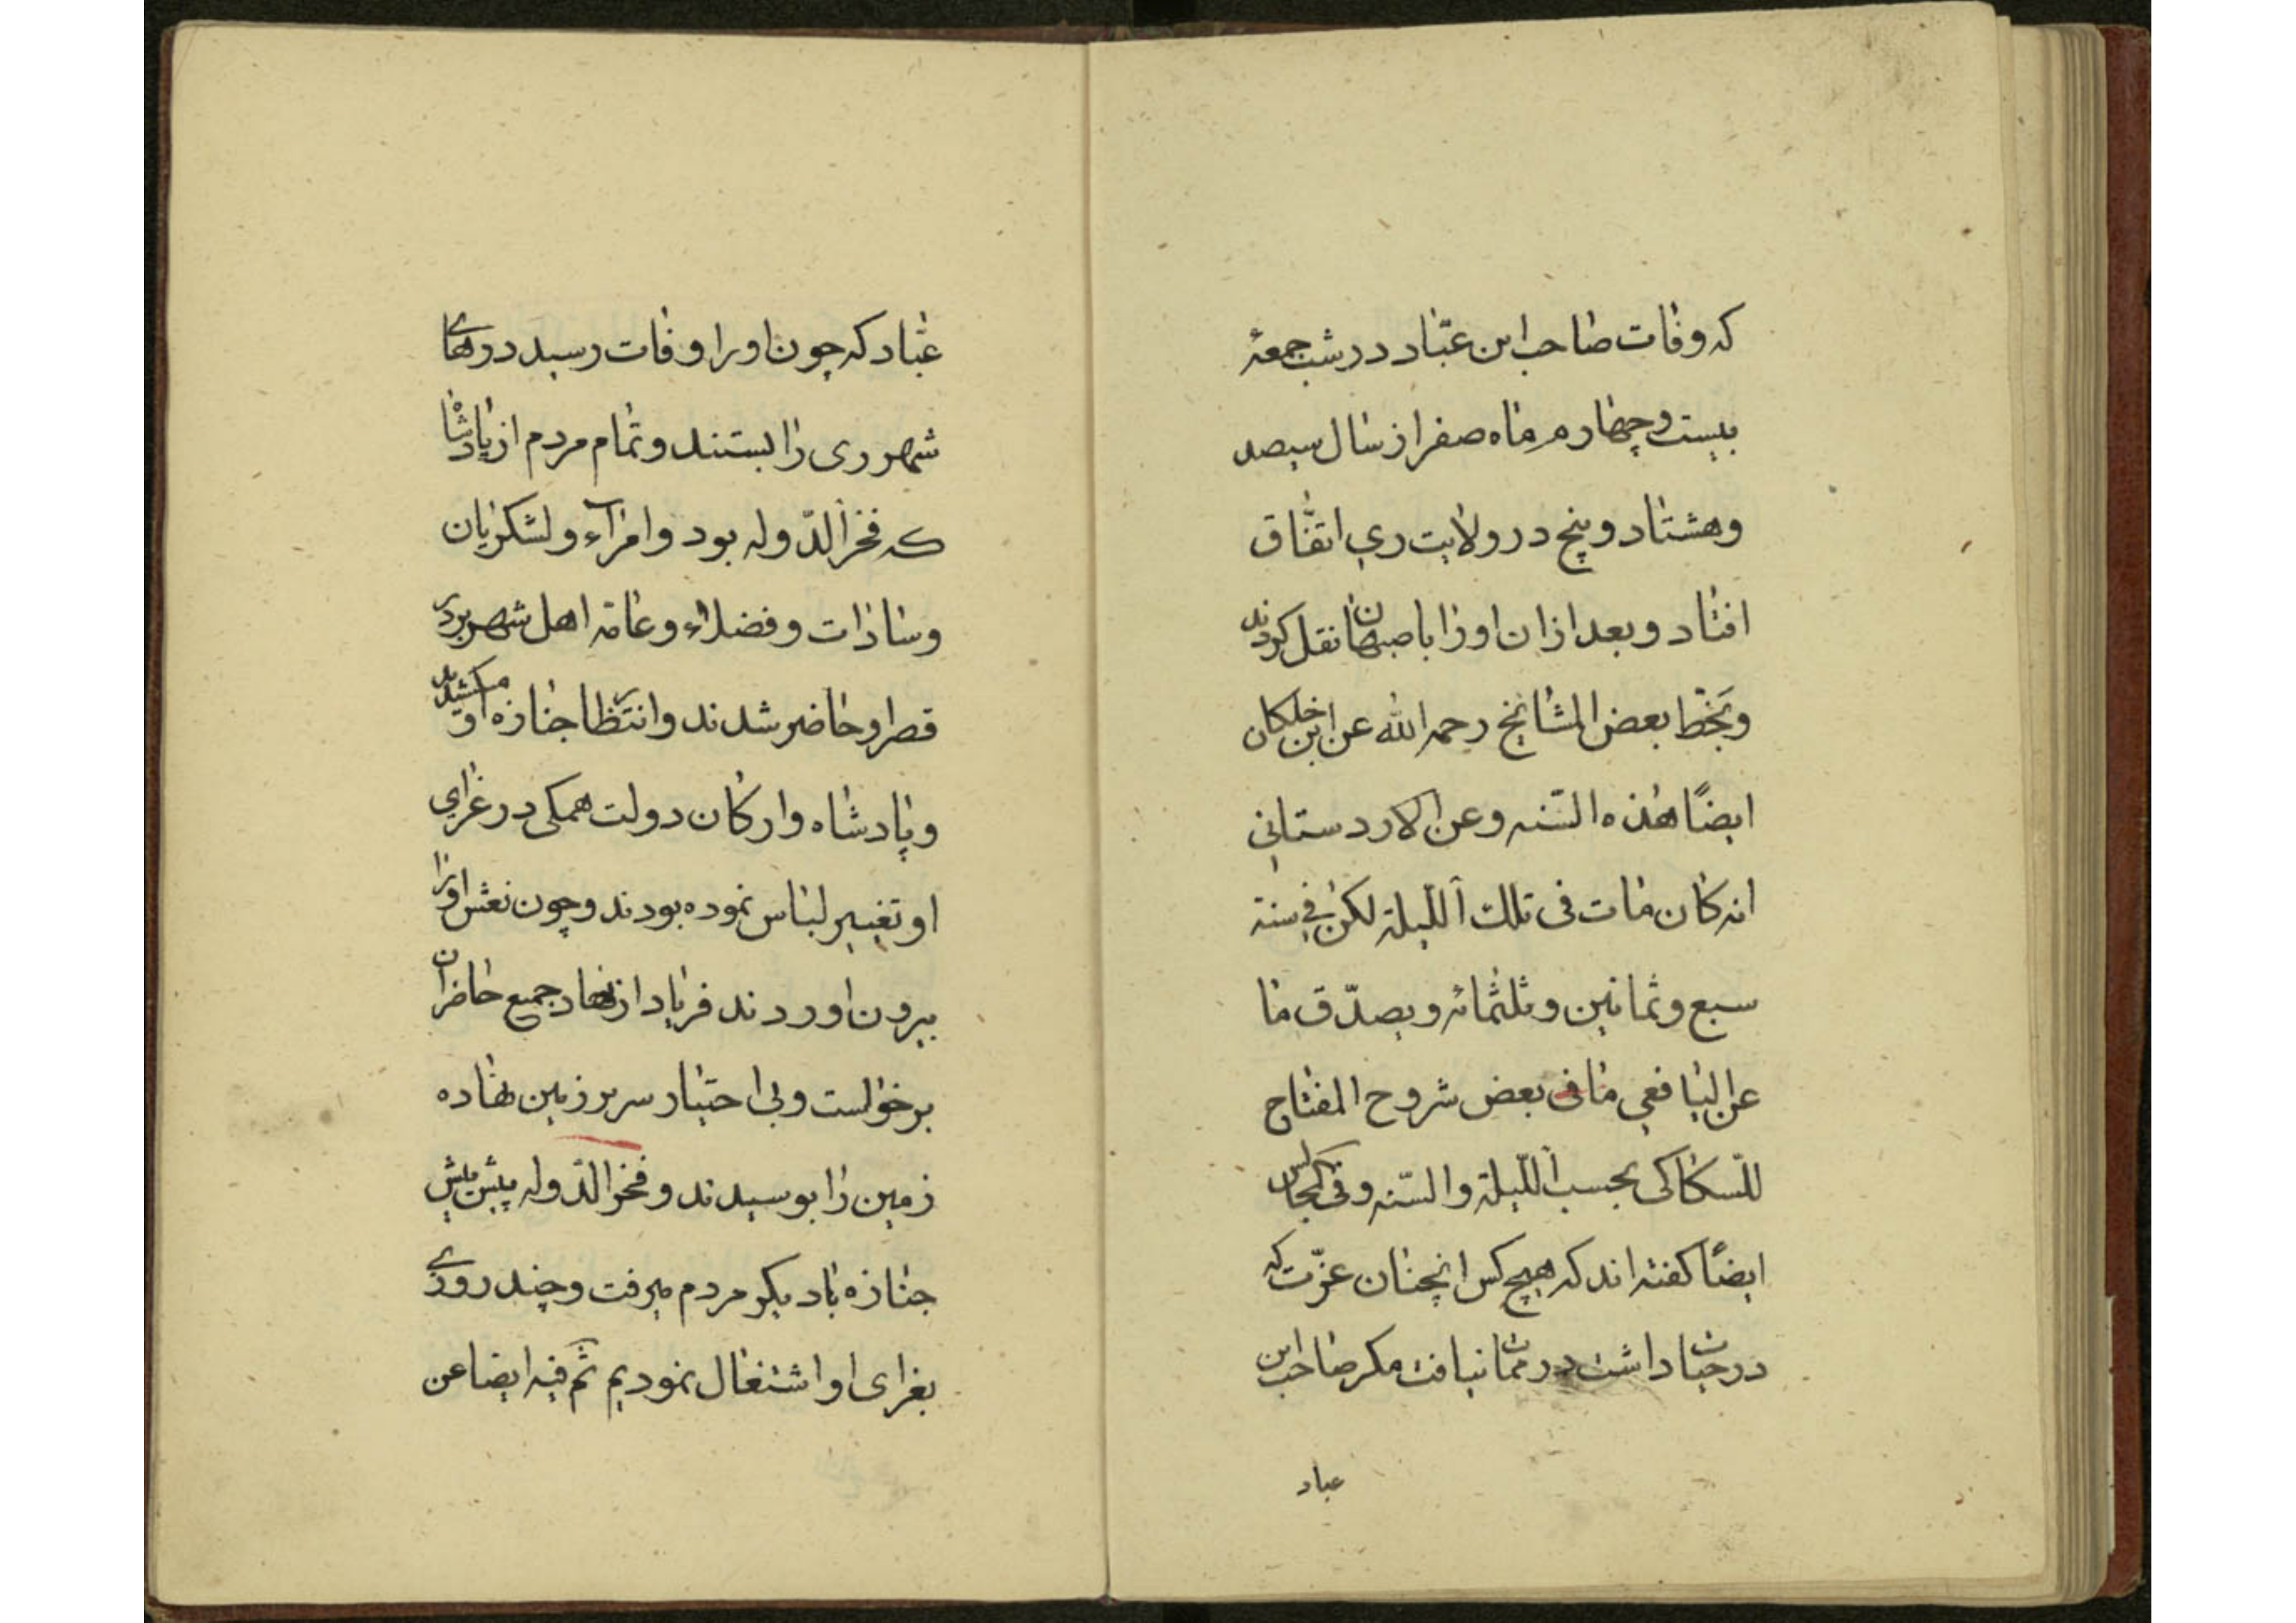 که وفات صاحب ابن عبّاد در شب جمعهٔ
بیست و چهارم ماه صفر از سال سیصد
و هشتاد و پنج در ولایت ری اتّفاق
افتاد و بعد از آن او را باصبهان نقل کردند
و بخطّ بعض المشائخ رحمه الله عن ابن خلکان
ایضًا هذه السّنه و عن الاردستانی
انه کان مات فی تلک اللّیلة لکن فی سنة
سبع و ثمانین و ثلثمائه و یصدّق ما
عن الیافعی ما فی بعض شروح المفتاح
للسّکاکی بحسب اللّیلة و السّنه و فی المجالس
ایضًا کفته اند که هیچ کس انچنان عزّت که
در حیات داشت در ممات نیافت مکر صاحب ابن
عباد
عبّاد که چون او را وفات رسید درهای
شهر ری را بستند و تمام مردم از پادشاه
که فخر الدّوله بود و امرآء و لشکریان
و سادات و فضلاء و عامّه اهل شهر بر در
قصر او حاضر شدند و انتظار جنازه او میکشیدند
و پادشاه و ارکان دولت همکی در عزای
او تغییر لباس نموده بودند و چون نعش او را
بیرون اوردند فریاد از نهاد جمیع حاضران
برخواست و بی اختیار سر بر زمین نهاده
زمین را بوسیدند و فخر الدّوله پیش پیش
جنازه با دیکر مردم میرفت و چند روزی
بعزای او اشتغال نمودیم ثمّ فیه ایضا عن